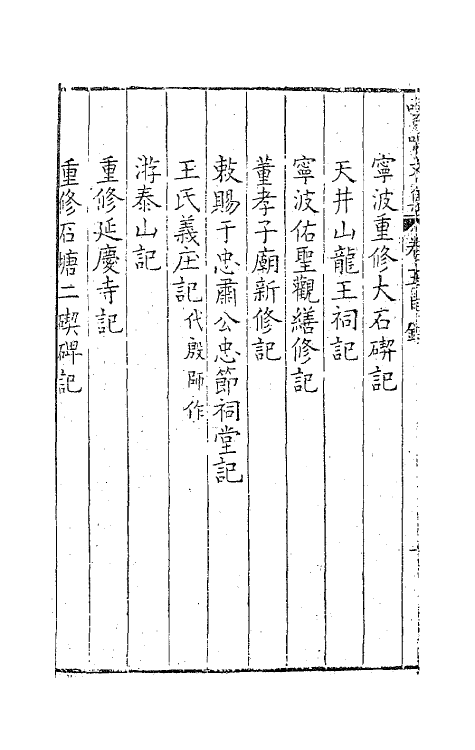 寧波重修大石碶記
天井山龍王祠記
寧波佑聖觀繕修記
董孝子廟新修記
敕賜于忠肅公忠節祠堂記
王氏義庄記代殷師作
游泰山記
重修延慶寺記
重修石塘二碶碑記